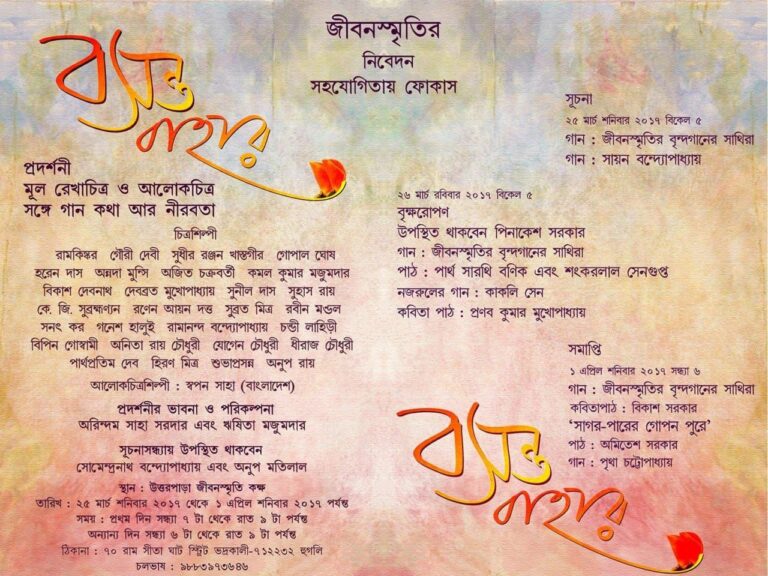 জীবনস্মৃতির
নিবেদন
সহযোগিতায় ফোকাস
বসন্ত
বাহার
প্রদর্শনী
মূল রেখাচিত্র ও আলোকচিত্র
সঙ্গে গান কথা আর নীরবতা
চিত্রশিল্পী
রামকিঙ্কর গৌরী দেবী সুধীর রঞ্জন খাস্তগীর গোপাল ঘোষ
হরেন দাস অন্নদা মুন্সি অজিত চক্রবর্তী কমল কুমার মজুমদার
বিকাশ দেবনাথ দেবব্রত মুখোপাধ্যায় সুনীল দাস সুহাস রায়
কে. জি. সুব্রহ্মণ্যন রণেন আয়ন দত্ত সুব্রত মিত্র রবীন মণ্ডল
সনৎ কর গনেশ হালুই রামানন্দ বন্দ্যোপাধ্যায় চণ্ডী লাহিড়ী
বিপিন গোস্বামী অনিতা রায় চৌধুরী যোগেন চৌধুরী ধীরাজ চৌধুরী
পার্থপ্রতিম দেব হিরণ মিত্র শুভাপ্রসন্ন অনুপ রায়
আলোকচিত্রশিল্পী : স্বপন সাহা (বাংলাদেশ)
প্রদর্শনীর ভাবনা ও পরিকল্পনা
অরিন্দম সাহা সরদার এবং ঋষিতা মজুমদার
সূচনাসন্ধ্যায় উপস্থিত থাকবেন
সোমেন্দ্রনাথ বন্দ্যোপাধ্যায় এবং অনুপ মতিলাল
স্থান : উত্তরপাড়া জীবনস্মৃতি কক্ষ
তারিখ : ২৫ মার্চ শনিবার ২০১৭ থেকে ১ এপ্রিল শনিবার ২০১৭ পর্যন্ত
সময় : প্রথম দিন সন্ধ্যা ৭ টা থেকে রাত ৯ টা পর্যন্ত
অন্যান্য দিন সন্ধ্যা ৬ টা থেকে রাত ৯ টা পর্যন্ত
ঠিকানা : ৭০ রাম সীতা ঘাট স্ট্রিট ভদ্রকালী-৭১২২৩২ হুগলি
চলভাষ : ৯৮৮৩৯৭৩৬৪৬
সূচনা
২৫ মার্চ শনিবার ২০১৭ বিকেল ৫
গান : জীবনস্মৃতির বৃন্দগানের সাথিরা
গান : সায়ন বন্দ্যোপাধ্যায়
২৬ মার্চ রবিবার ২০১৭ বিকেল ৫
বৃক্ষরোপণ
উপস্থিত থাকবেন পিনাকেশ সরকার
গান : জীবনস্মৃতির বৃন্দগানের সাথিরা
পাঠ : পার্থ সারথি বণিক এবং শংকরলাল সেনগুপ্ত
নজরুলের গান : কাকলি সেন
কবিতা পাঠ : প্রণব কুমার মুখোপাধ্যায়
সমাপ্তি
১ এপ্রিল শনিবার ২০১৭ সন্ধ্যা ৬
গান : জীবনস্মৃতির বৃন্দগানের সাথিরা
কবিতাপাঠ : বিকাশ সরকার
‘সাগর-পারের গোপন পুরে’
পাঠ : অমিতেশ সরকার
গান : পৃথা চট্টোপাধ্যায়
বসন্ত
বাহার